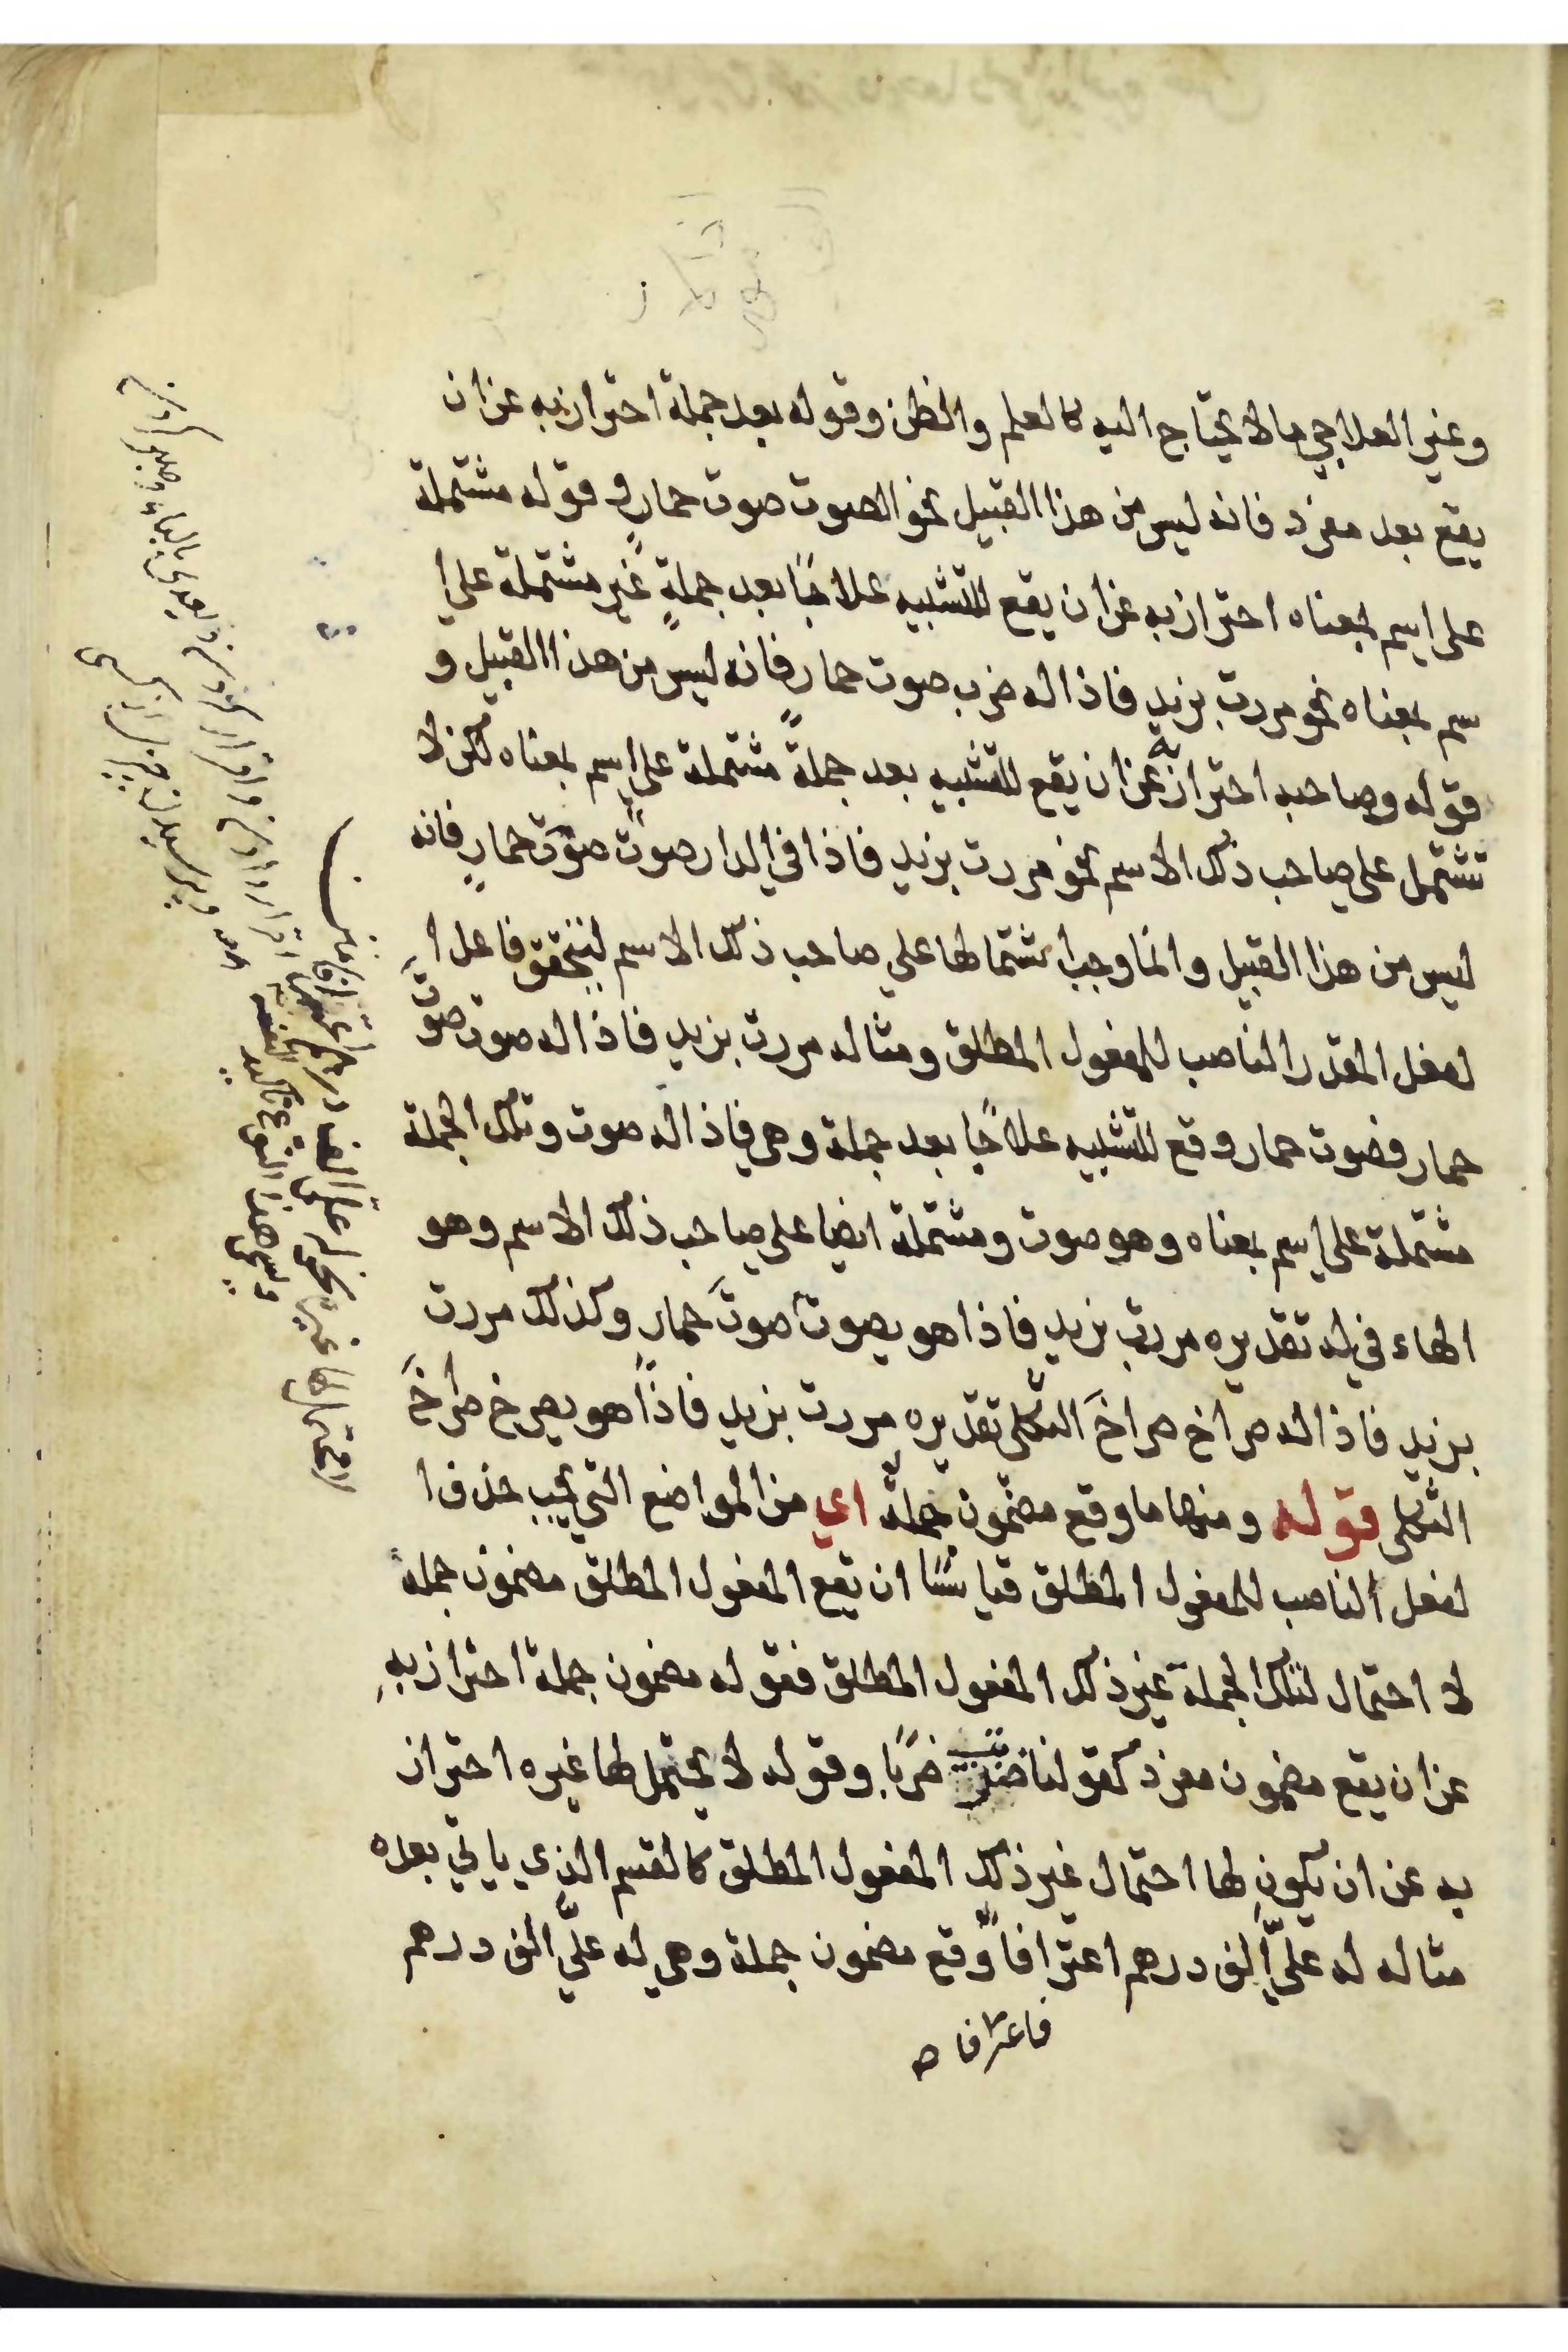 وغير العلاجي ما لا يحتاج اليه كالعلم والظن وقوله بعد جملة احتراز به عن ان
يقع بعد مفرد فانه ليس من هذا القبيل نحو الصوت صوت حمار و قوله مشتملة
على اسم بمعناه احتراز به عن ان يقع للتشبيه علاجًا بعد جملةٍ غير مشتملة على ا
سم بمعناه نحو مررت بزيد فاذا له ضرب صوت حمار فانه ليس من هذا القبيل و
قوله وصاحبه احتراز به عن ان يقع للتشبيه بعد جملةً مشتملة على اسم بمعناه لكن لا
تشتمل على صاحب ذلك الاسم نحو مررت بزيد فاذا في الدار صوت صوت حمارٍ فانه
ليس من هذا القبيل وانما وجب اشتمالها علي صاحب ذلك الاسم لتحقق فاعل ا
لفعل المقدر الناصب للمفعول المطلق ومثاله مررت بزيد فاذا له صوت صوتَ
حمار فصوت حمار وقع للتشبيه علاجًا بعد جملة وهي فاذا له صوت وتلك الجملة
مشتملة على اسم بمعناه وهو صوت ومشتملة ايضا على صاحب ذلك الاسم وهو
الهاء في له تقديره مررت بزيد فاذا هو يصوت صوتَ حمار وكذلك مررت
بزيد فاذا له صراخ صراخَ الثكلى تقديره مررت بزيد فاذاً هو يصرخ صراخَ
الثكلى قوله ومنها ما وقع مضمون جملة اي من المواضع التي يجب حذف ا
لفعل الناصب للمفعول المطلق قياسًا ان يقع المفعول المطلق مضمون جملة
لا احتمال لتلك الجملة غير ذلك المفعول المطلق فقوله مضمون جملة احتراز بهِ
عن ان يقع مضمون مفرد كقولنا ضربت ضربًا وقوله لا يحتمل لها غيره احتراز
به عن ان يكون لها احتمال غير ذلك المفعول المطلق كالقسم الذي ياتي بعده
مثاله له عليَّ الف درهم اعترافاً وقع مضمون جملة وهي له عليَّ الف درهم
فاعترافا